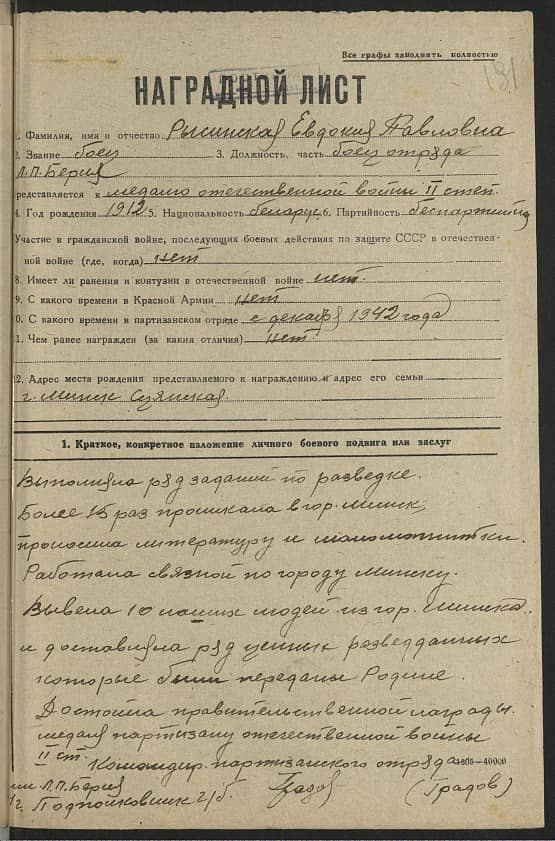 Все графы заполнять полностью
181
НАГРАДНОЙ ЛИСТ
1. Фамилия, имя и отчество Рысинская Евдокия Павловна
2. Звание боец 3. Должность, часть боец отряда
Л.П. Берия
представляется к медалю отечественной войны II степ.
4. Год рождения 1912 5. Национальность беларус. 6. Партийность беспартийна
Участие в гражданской войне, последующих боевых действиях по защите СССР в отечествен-
ной войне (где, когда) нет
8. Имеет ли ранения и контузии в отечественной войне нет.
9. С какого времени в Красной Армии нет
0. С какого времени в партизанском отряде с декабря 1942 года
1. Чем ранее награжден (за какия отличия) нет.
12. Адрес места рождения представляемого к награждению и адрес его семьи
г. Минск
1. Краткое, конкретное изложение личного боевого подвига или заслуг
Выполнила ряд заданий по разведке.
Более 15 раз проникала в гор. Минск,
проносила литературу и
Работала связной по городу Минску.
Вывела 10 наших людей из гор. Минска
и доставила ряд ценных разведданных
которые были переданы Родине.
Достойна правительственной награды.
медаля партизану отечественной войны
II ст. Командир партизанского отряда 4866—40000
им Л.П. Берия
Подполковник г/б. Градов (Градов)